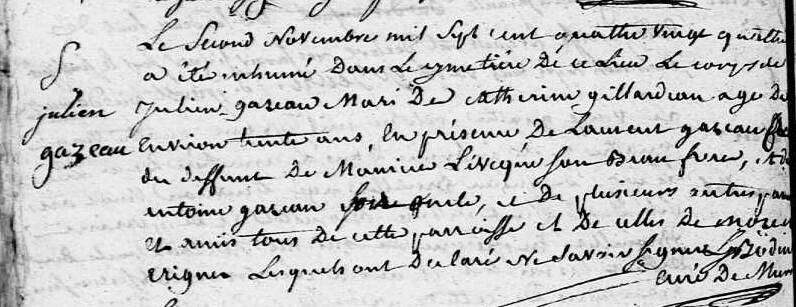 S
julien
gazeau
Le Second Novembre mil Sept cent quatre vingt quattre
a été inhumé Dans Le cymetiére De ce Lieu Le corps de
Julien gazeau Mari De catherine gillardeau age De
Environ trente ans, En présence De Laurent gazeau frere
du deffunt de Maurice Lévêque son Beau frere, et de
antoine gazeau oncle, et De plusieurs autres
et amis tous de cette parroisse et De celles de
Erigné Lesquels ont Declaré Ne Savoir Signer
Curé De